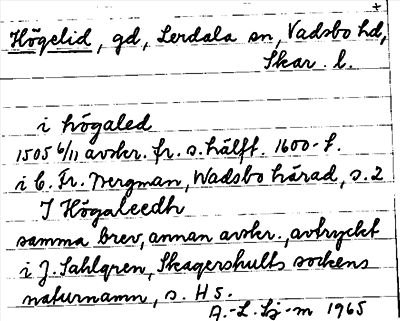 +
Högelid, gd, Lerdala sn, Vadsbo hd,
Skar. l.
i högaled
1505 6/11 avskr. fr. s. hälft. 1600-t.
i C. Fr. Nergman, Wadsbo härad, s. 2
I Högaleedh
samma brev, annan avskr., avtryckt
i J. Sahlgren, Skagershults sockens
naturnamn, s. H5.
A.-L. Lj-m 1965